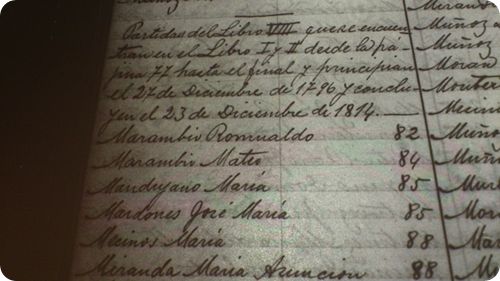 Partidas del Libro VIIII que se encuen-
tran en el Libro I y II desde la pa-
gina 77 hasta el final y principian
el 27 de Diciembre de 1796 y conclu-
yen el 23 de Diciembre de 1814.
Marambio Romualdo 82
Marambio Mateo 84
Mandujano María 85
Mardones José María 85
Mecinos María 88
Meranda María Asuncion 88
Muñoz
Muñoz
Moran